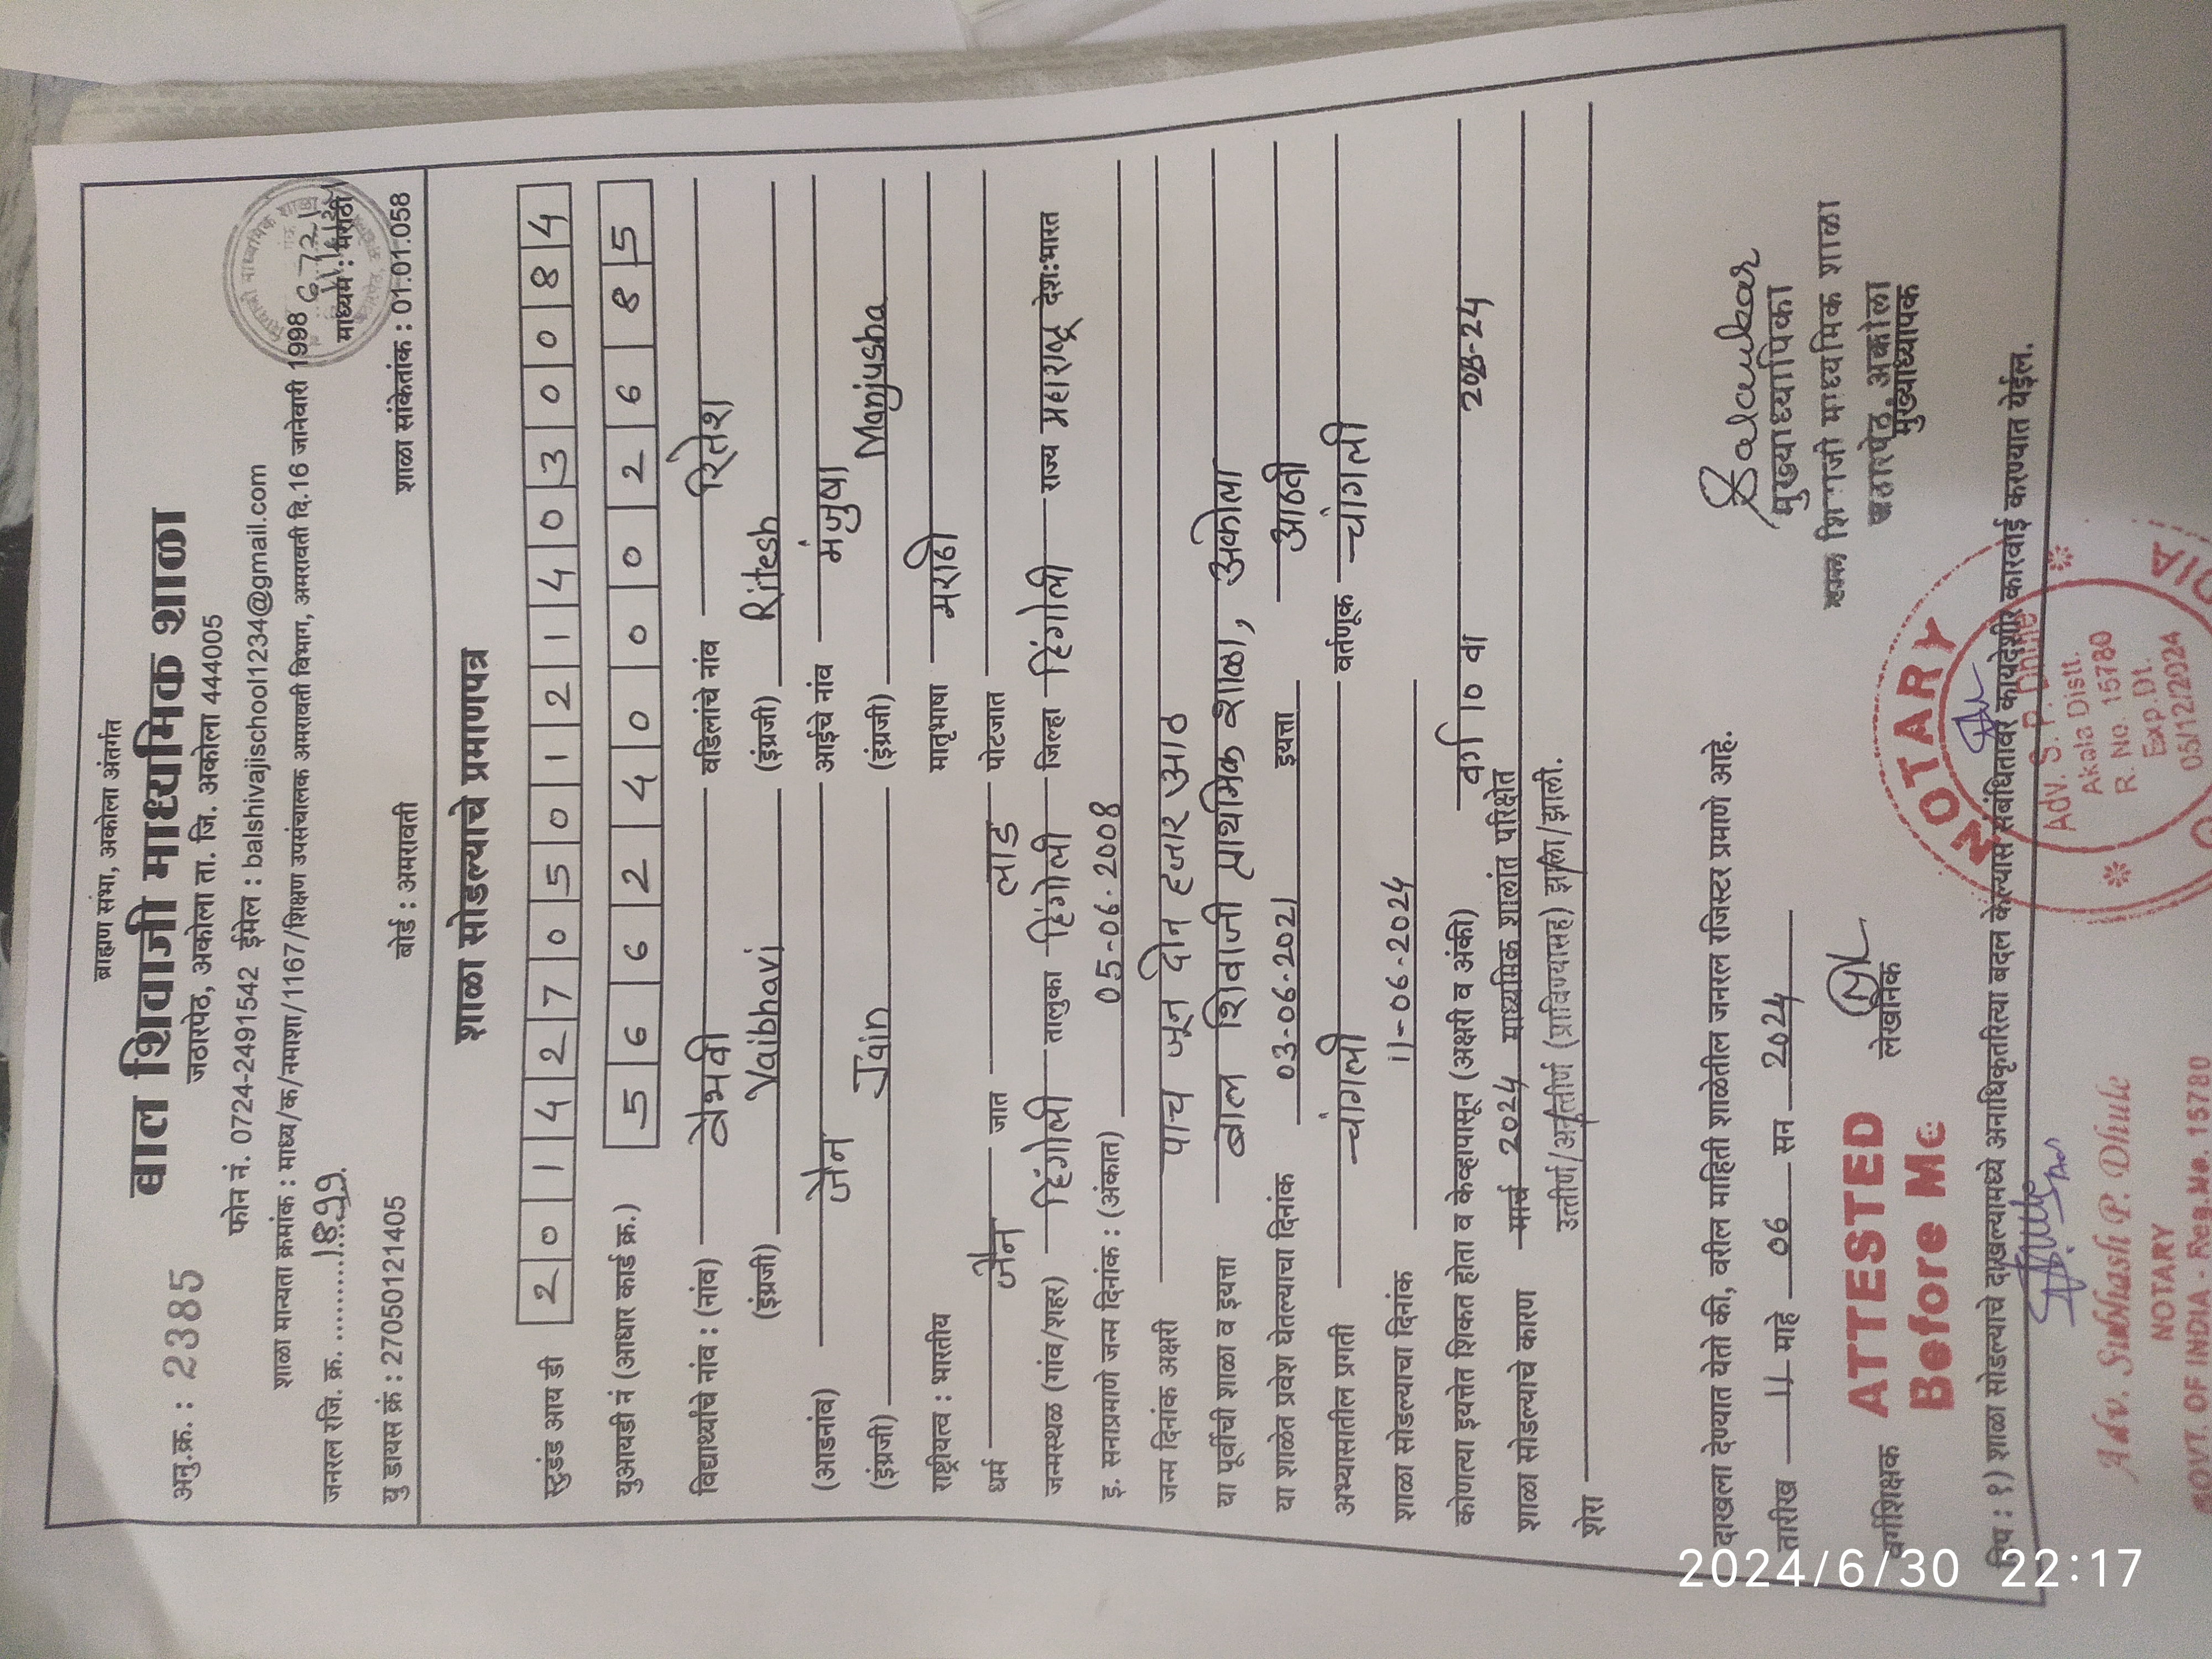 ब्राह्मण सभा, अकोला अंतर्गत
अनु.क्र. : 2385 बाल शिवाजी माध्यमिक शाळा
जठारपेठ, अकोला ता. जि. अकोला 444005
फोन नं. 0724-2491542 ईमेल : balshivajischool1234@gmail.com
शाळा मान्यता क्रमांक : माध्य/क/नमाशा/1167/शिक्षण उपसंचालक अमरावती विभाग, अमरावती दि.16 जानेवारी 1998
जनरल रजि. क्र. ..........1899. माध्यम : मराठी
यु डायस क्रं : 27050121405 बोर्ड : अमरावती शाळा सांकेतांक : 01.01.058
शाळा सोडल्याचे प्रमाणपत्र
स्टुडंड आय डी 2 0 1 4 2 7 0 5 0 1 2 1 4 0 3 0 0 8 4
युआयडी नं (आधार कार्ड क्र.) 5 6 6 2 4 0 0 0 2 6 8 5
विद्यार्थ्यांचे नांव : (नांव) वैभवी वडिलांचे नांव रितेश
(इंग्रजी) Vaibhavi (इंग्रजी) Ritesh
(आडनांव) जैन आईचे नांव मंजुषा
(इंग्रजी) Jain (इंग्रजी) Manjusha
राष्ट्रीयत्व : भारतीय मातृभाषा मराठी
धर्म जैन जात लाड पोटजात
जन्मस्थळ (गांव/शहर) हिंगोली तालुका हिंगोली जिल्हा हिंगोली राज्य महाराष्ट्र देश:भारत
इ. सनाप्रमाणे जन्म दिनांक : (अंकात) 05-06-2008
जन्म दिनांक अक्षरी पाच जून दोन हजार आठ
या पूर्वीची शाळा व इयत्ता बाल शिवाजी प्राथमिक शाळा, अकोला
या शाळेत प्रवेश घेतल्याचा दिनांक 03-06-2021 इयत्ता आठवी
अभ्यासातील प्रगती चांगली वर्तणूक चांगली
शाळा सोडल्याचा दिनांक 11-06-2024
कोणत्या इयत्तेत शिकत होता व केव्हापासून (अक्षरी व अंकी) वर्ग 10 वा
शाळा सोडल्याचे कारण मार्च 2024 माध्यमिक शालांत परिक्षेत
शेरा उत्तीर्ण/अनुत्तीर्ण (प्राविण्यासह) झाला/झाली.
दाखला देण्यात येतो की, वरील माहिती शाळेतील जनरल रजिस्टर प्रमाणे आहे.
तारीख 11 माहे 06 सन 2024
मुख्याध्यापिका
शिवाजी माध्यमिक शाळा
जठारपेठ, अकोला
वर्गशिक्षक लेखनिक मुख्याध्यापक
ATTESTED
Before Me
टिप : १) शाळा सोडल्याचे दाखल्यामध्ये अनाधिकृतरित्या बदल केल्यास संबंधितावर कायदेशीर कारवाई करण्यात येईल.
Adv. Subhash P. Dhule
NOTARY
GOVT. OF INDIA - Reg.No. 15780
NOTARY
Adv. S. P. Dhule
Akola Distt.
R. No. 15780
Exp.Dt.
05/12/2024
2024/6/30 22:17